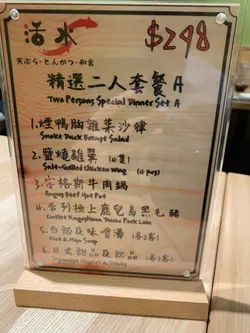 活水
$298
天ぷら·とんかつ·和食
精選二人套餐A
Two Persons Special Dinner Set A
1.煙鴨胸雜菜沙律
Smoke Duck Breast Salad
2.鹽燒雞翼 (6隻)
Salt-Grilled Chicken Wing (6 pcs)
3.安格斯牛肉鍋
Angus Beef Hot Pot
4.吉列極上鹿兒島黑毛豬
Cutlet Kagoshima Kurou Pork Loin
5.白飯及味噌湯 (各2客)
Rice & Miso Soup
6.日式甜品及飲品 (各2客)
Japanese Dessert & Drinks